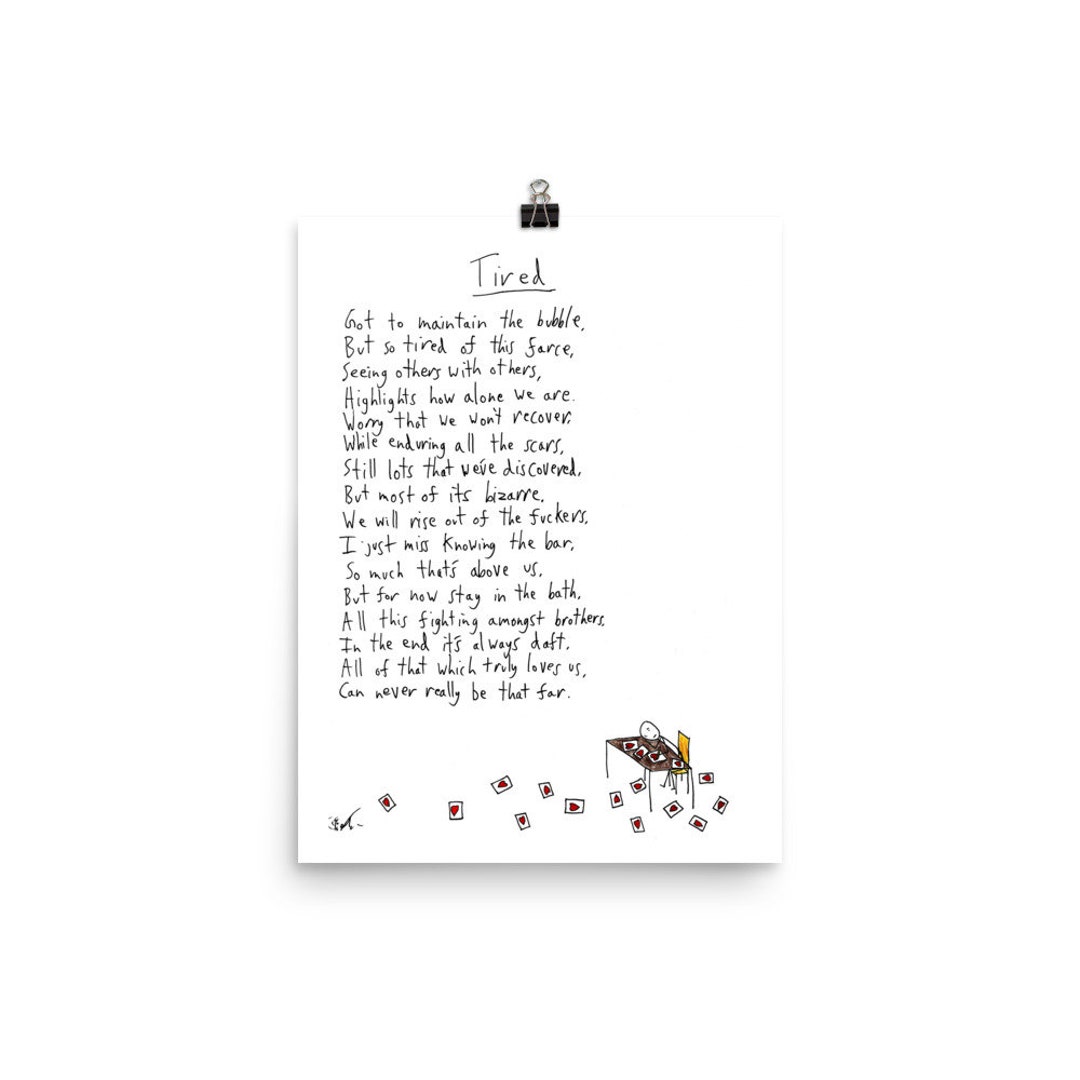 Tired
Got to maintain the bubble,
But so tired of this farce,
Seeing others with others,
Highlights how alone we are.
Worry that we won't recover,
While enduring all the scars,
Still lots that we've discovered,
But most of it's bizarre,
We will rise out of the fuckers,
I just miss knowing the bar,
So much that's above us,
But for now stay in the bath,
All this fighting amongst brothers,
In the end it's always daft.
All of that which truly loves us,
Can never really be that far.